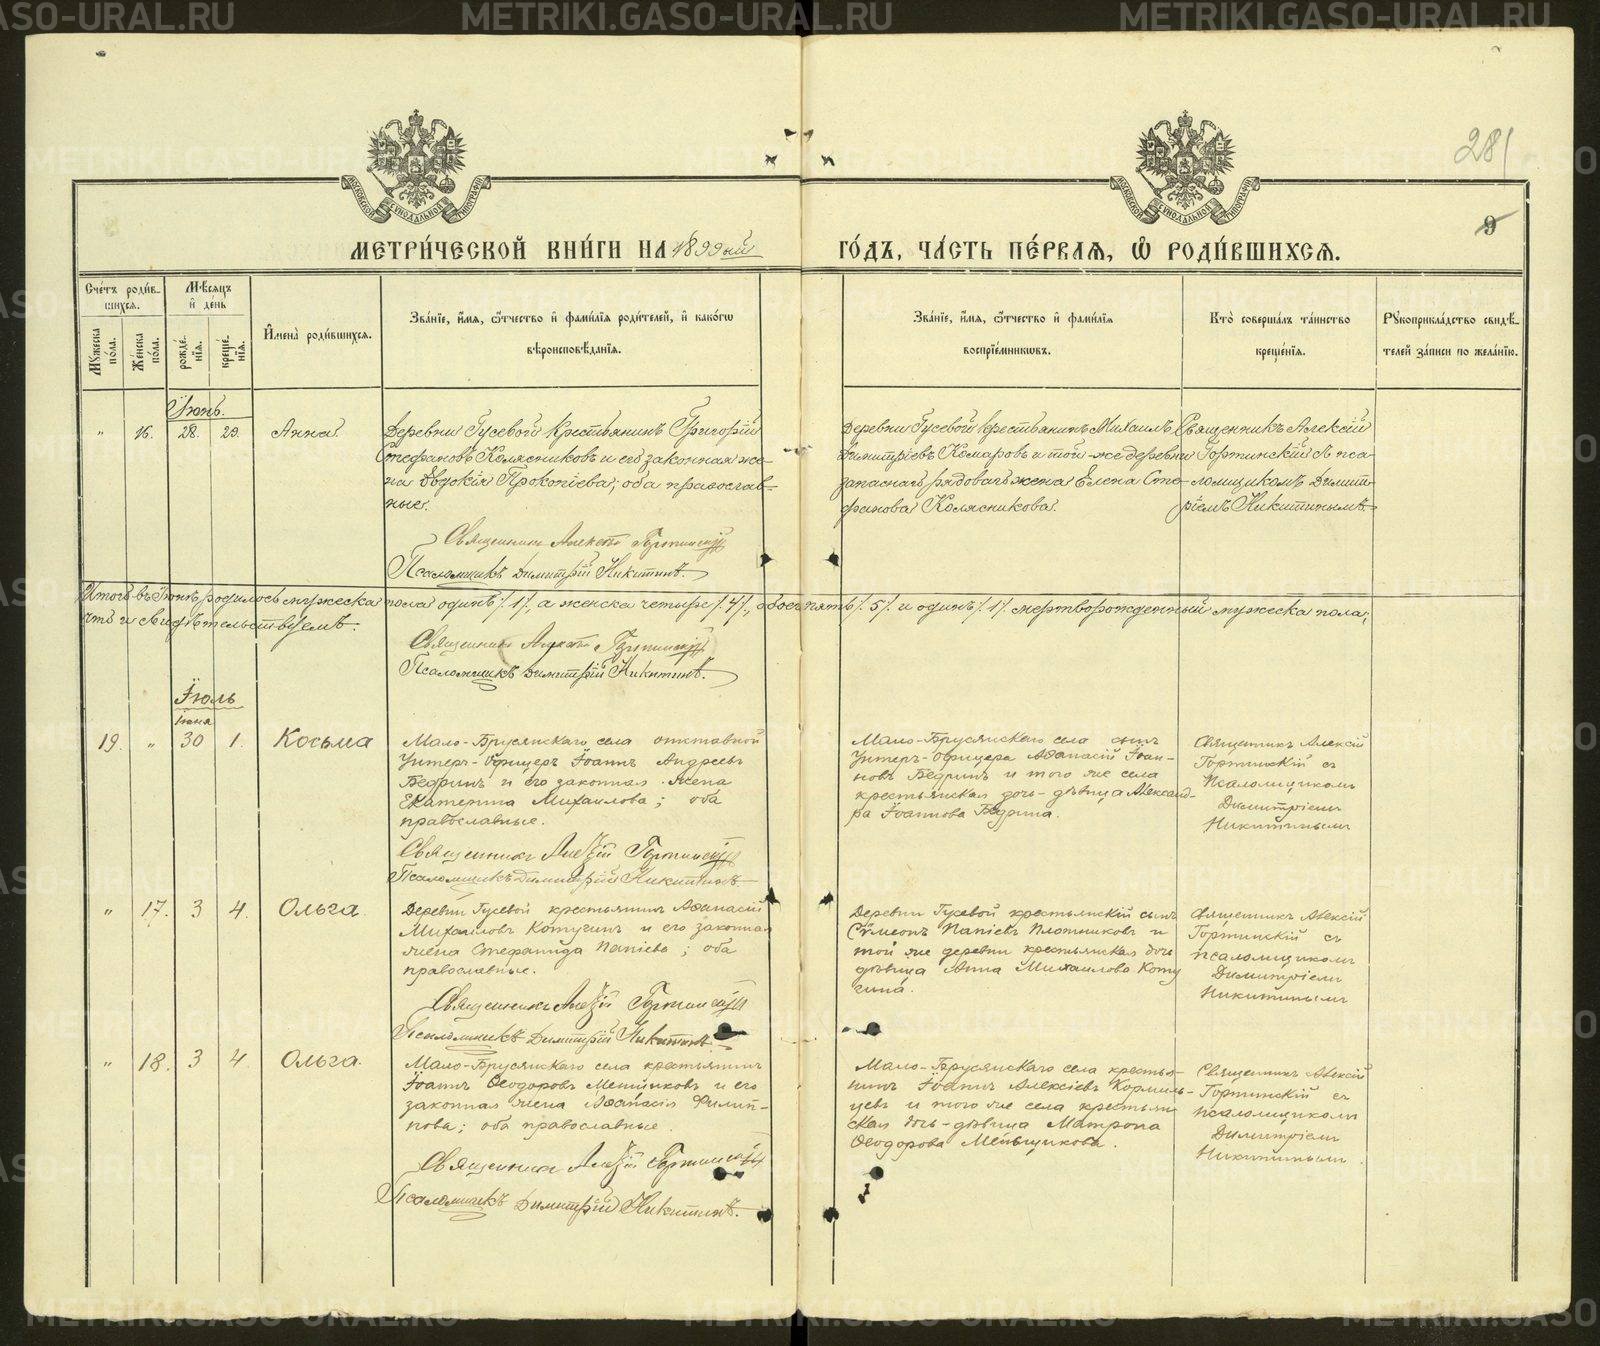 281
9
МОСКОВСКОЙ СѴНОДАЛЬНОЙ ТИПОГРАФІИ
МОСКОВСКОЙ СѴНОДАЛЬНОЙ ТИПОГРАФІИ
МЕТРИ́ЧЕСКОЙ КНИ́ГИ НА 1899ый ГО́ДЪ, ЧА́СТЬ ПЕ́РВАЯ, Ѡ҆ РОДИ́ВШИХСЯ.
Сче́тъ роди́в-
шихся.
Мꙋжеска по́ла.
Же́нска по́ла.
Мѣ́сяцъ и҆ де́нь
рожде́-
нїя.
креще́-
нїя.
И҆мена̀ роди́вшихся.
Зва́нїе, и҆́мя, ѻ҆́тчество и҆ фами́лїя роди́телей, и҆ како́гѡ
вѣроисповѣ́данїя.
Зва́нїе, и҆́мя, ѻ҆́тчество и҆ фами́лїя
воспрїе́мниковъ.
Кто̀ соверша́лъ та́инство
креще́нїя.
Рꙋкоприкла́дство свидѣ́-
телей за́писи по жела́нїю.
Іюнь.
" 16. 28. 29. Анна.
Деревни Гусевой крестьянинъ Григорій
Стефановъ Колясниковъ и его законная же-
на Евдокія Прокопіева; оба православ-
ные.
Священникъ Алексій Гортинскій
Псаломщикъ Димитрій Никитинъ.
Деревни Гусевой крестьянинъ Михаилъ
Димитріевъ Комаровъ и той-же деревни
запаснаго рядоваго жена Елена Сте-
фанова Колясникова.
Священникъ Алексій
Гортинскій съ пса-
ломщикомъ Димит-
ріемъ Никитинымъ
Итого въ Іюнѣ родилось мужеска пола одинъ /.1/., а женска четыре /.4/., обоего пять /.5/. и одинъ /.1/. мертворожденный мужеска пола;
что и свидѣтельствуемъ.
Священникъ Алексій Гортинскій
Псаломщикъ Димитрій Никитинъ.
Іюль
Іюня
19. " 30 1. Косьма
Мало-Брусянскаго села отставной
Унтеръ-Офицеръ Іоаннъ Андреевъ
Бедринъ и его законная жена
Екатерина Михаилова; оба
православные.
Священникъ Алексій Гортинскій
Псаломщикъ Димитрій Никитинъ
Мало-Брусянскаго села сынъ
Унтеръ-Офицера Аѳанасій Іоан-
новъ Бедринъ и того же села
крестьянская дочь-дѣвица Александ-
ра Іоаннова Бедрина.
Священникъ Алексій
Гортинскій съ
Псаломщикомъ
Димитріемъ
Никитинымъ
" 17. 3 4. Ольга.
Деревни Гусевой крестьянинъ Аѳанасій
Михаиловъ Котугинъ и его законная
жена Стефанида Папіева; оба
православные.
Священникъ Алексій Гортинскій
Псаломщикъ Димитрій Никитинъ.
Деревни Гусевой крестьянскій сынъ
Сѵмеонъ Папіевъ Плотниковъ и
той же деревни крестьянская дочь
дѣвица Анна Михаилова Коту
гина.
Священникъ Алексій
Гортинскій съ
псаломщикомъ
Димитріемъ
Никитинымъ
" 18. 3 4 Ольга.
Мало-Брусянскаго села крестьянинъ
Іоаннъ Ѳеодоровъ Меншиковъ и его
законная жена Аѳанасія Филип-
пова; оба православные.
Священникъ Алексій Гортинскій
Псаломщикъ Димитрій Никитинъ.
Мало-Брусянскаго села крестья-
нинъ Іоаннъ Алексіевъ Кормиль-
цевъ и того же села крестьян
ская дочь-дѣвица Матрона
Ѳеодорова Меньщикова.
Священникъ Алексій
Гортинскій съ
псаломщикомъ
Димитріемъ
Никитинымъ
METRIKI.GASO-URAL.RU